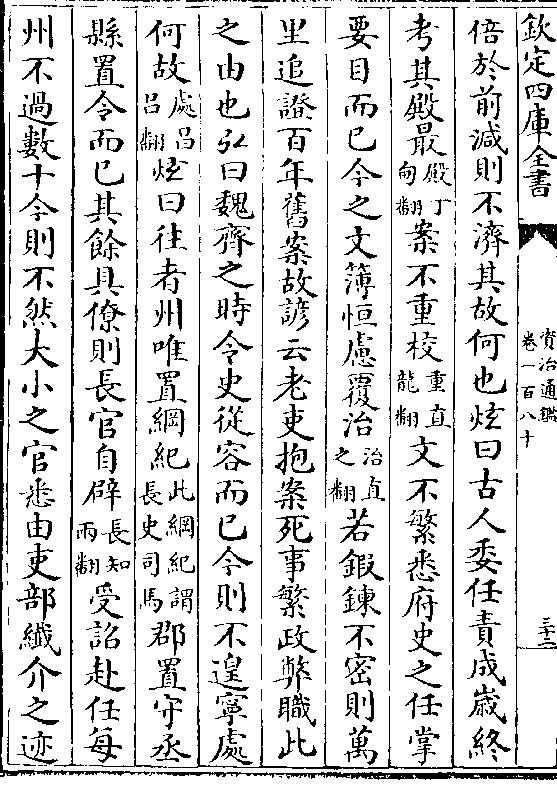 欽定四庫全書
資治通鑑
卷一百八十
三十二
倍於前減則不濟其故何也炫曰古人委任責成歲終
考其殿最殿丁甸翻案不重校重直龍翻文不繁悉府史之任掌
要目而已今之文簿恒慮覆治治直之翻若鍛鍊不密則萬
里追證百年舊案故諺云老吏抱案死事繁政弊職此
之由也弘曰魏齊之時令史從容而已今則不遑寧處
何故處昌呂翻炫曰往者州唯置綱紀此綱紀謂長史司馬郡置守丞
縣置令而已其餘具僚則長官自辟長知兩翻受詔赴任每
州不過數十今則不然大小之官悉由吏部纖介之迹